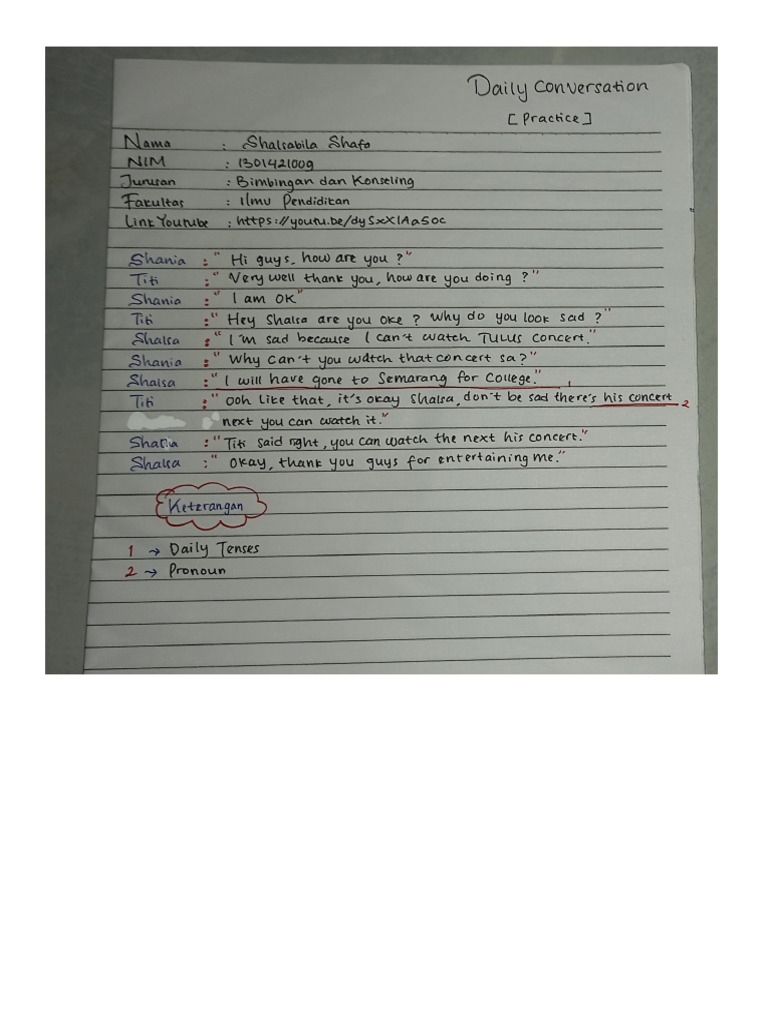 Daily Conversation
[ Practice ]
Nama : Shalsabila Shafa
NIM : 1301421009
Jurusan : Bimbingan dan Konseling
Fakultas : Ilmu Pendidikan
Link Youtube : https://youtu.be/dySxXIAa5oc
Shania : " Hi guys, how are you ?"
Titi : " Very well thank you, how are you doing ?"
Shania : " I am OK"
Titi : " Hey Shalsa are you oke ? Why do you look sad ?"
Shalsa : " I'm sad because I can't watch TULUS concert."
Shania : " Why can't you watch that concert sa ?"
Shalsa : " I will have gone to Semarang for College." 1
Titi : " Ooh like that, it's okay Shalsa, don't be sad there's his concert 2
next you can watch it."
Shania : " Titi said right, you can watch the next his concert."
Shalsa : " Okay, thank you guys for entertaining me."
Keterangan
1 → Daily Tenses
2 → Pronoun